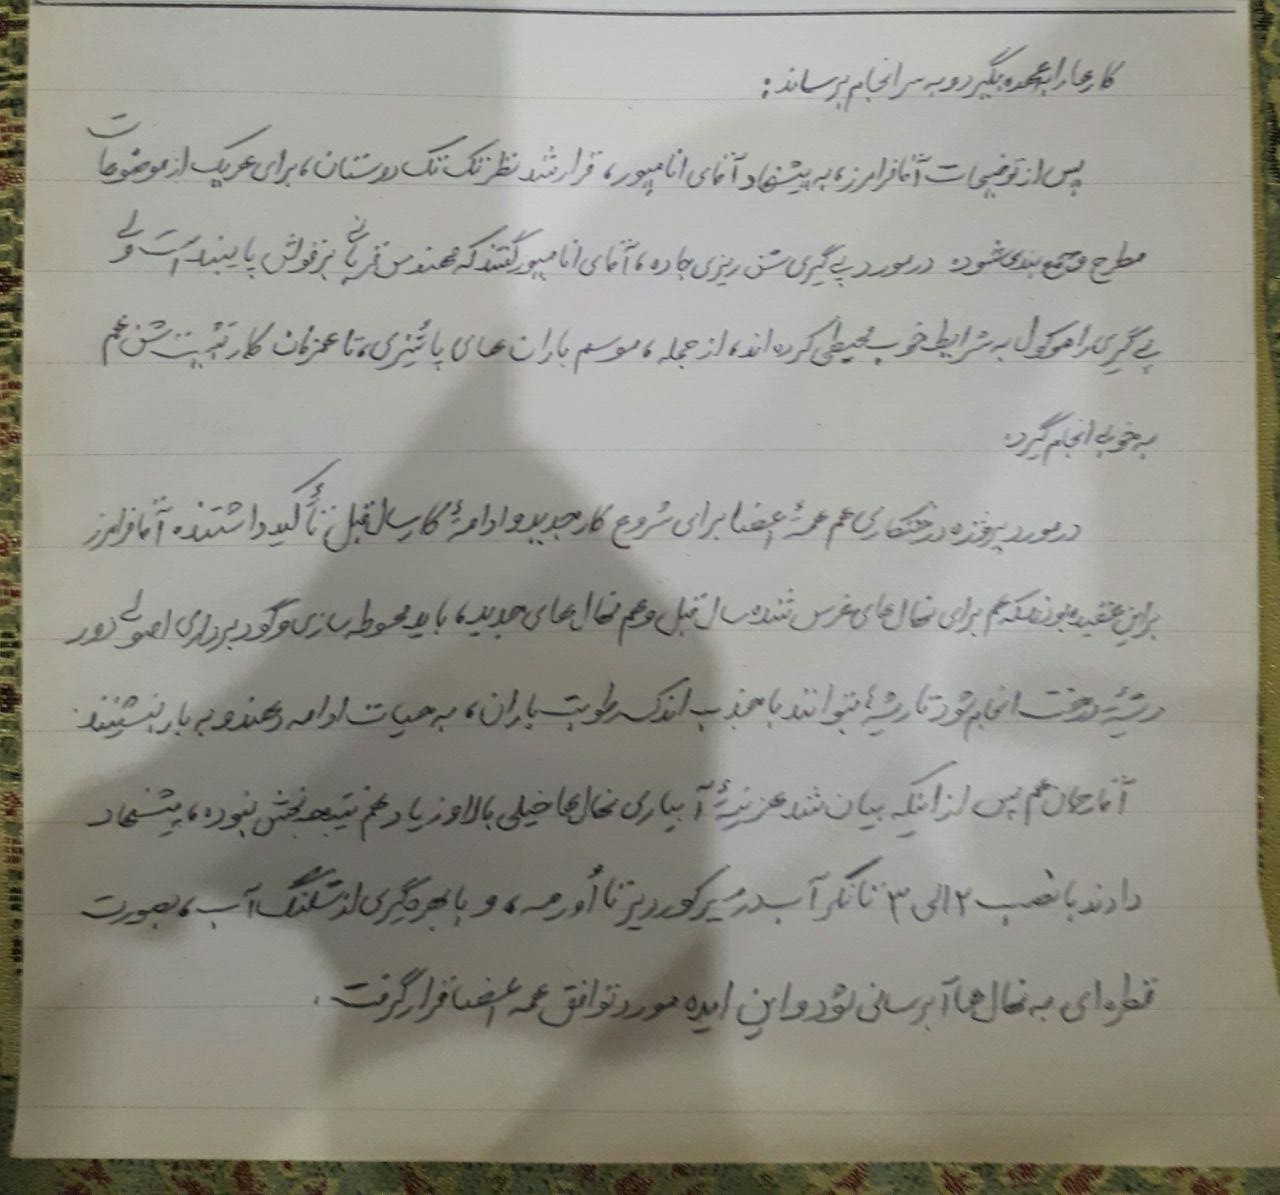 کارها را به عهده بگیرد و به سرانجام برساند:
پس از توضیحات آقافرامرز، به پیشنهاد آقای انامپور، قرار شد نظر تک تک دوستان، برای هریک از موضوعات
مطرح و جمع بندی شود. در مورد پی گیری شن ریزی جاده، آقای انامپور گفتند که مهندس قربانی بر قولش پایبند است ولی
پی گیری را موکول به شرایط خوب محیطی کرده اند، از جمله، موسم باران های پائیزی، تا همزمان کار تثبیت شن هم
به خوبی انجام گیرد.
در مورد پروژه درختکاری هم همهٔ اعضا برای شروع کار جدید و ادامهٔ کار سال قبل تأکید داشتند. آقافرامرز
بر این عقیده بودند که هم برای نهال های غرس شده سال قبل و هم نهال های جدید، باید محوطه سازی و گودبرداری اصولی دور
ریشهٔ درخت انجام شود تا ریشه ها بتوانند با جذب اندک رطوبت باران، به حیات ادامه دهند و به بار بنشینند.
آقا هم پس از اینکه بیان شد هزینهٔ آبیاری نهال ها خیلی بالا و زیاد هم نتیجه بخش نبوده، پیشنهاد
دادند با نصب ۲ الی ۳ تانکر آب در مسیر تا ، و با بهره گیری از شلنگ آب، بصورت
قطره ای به نهال ها آبرسانی شود و این ایده مورد توافق همه اعضا قرار گرفت.